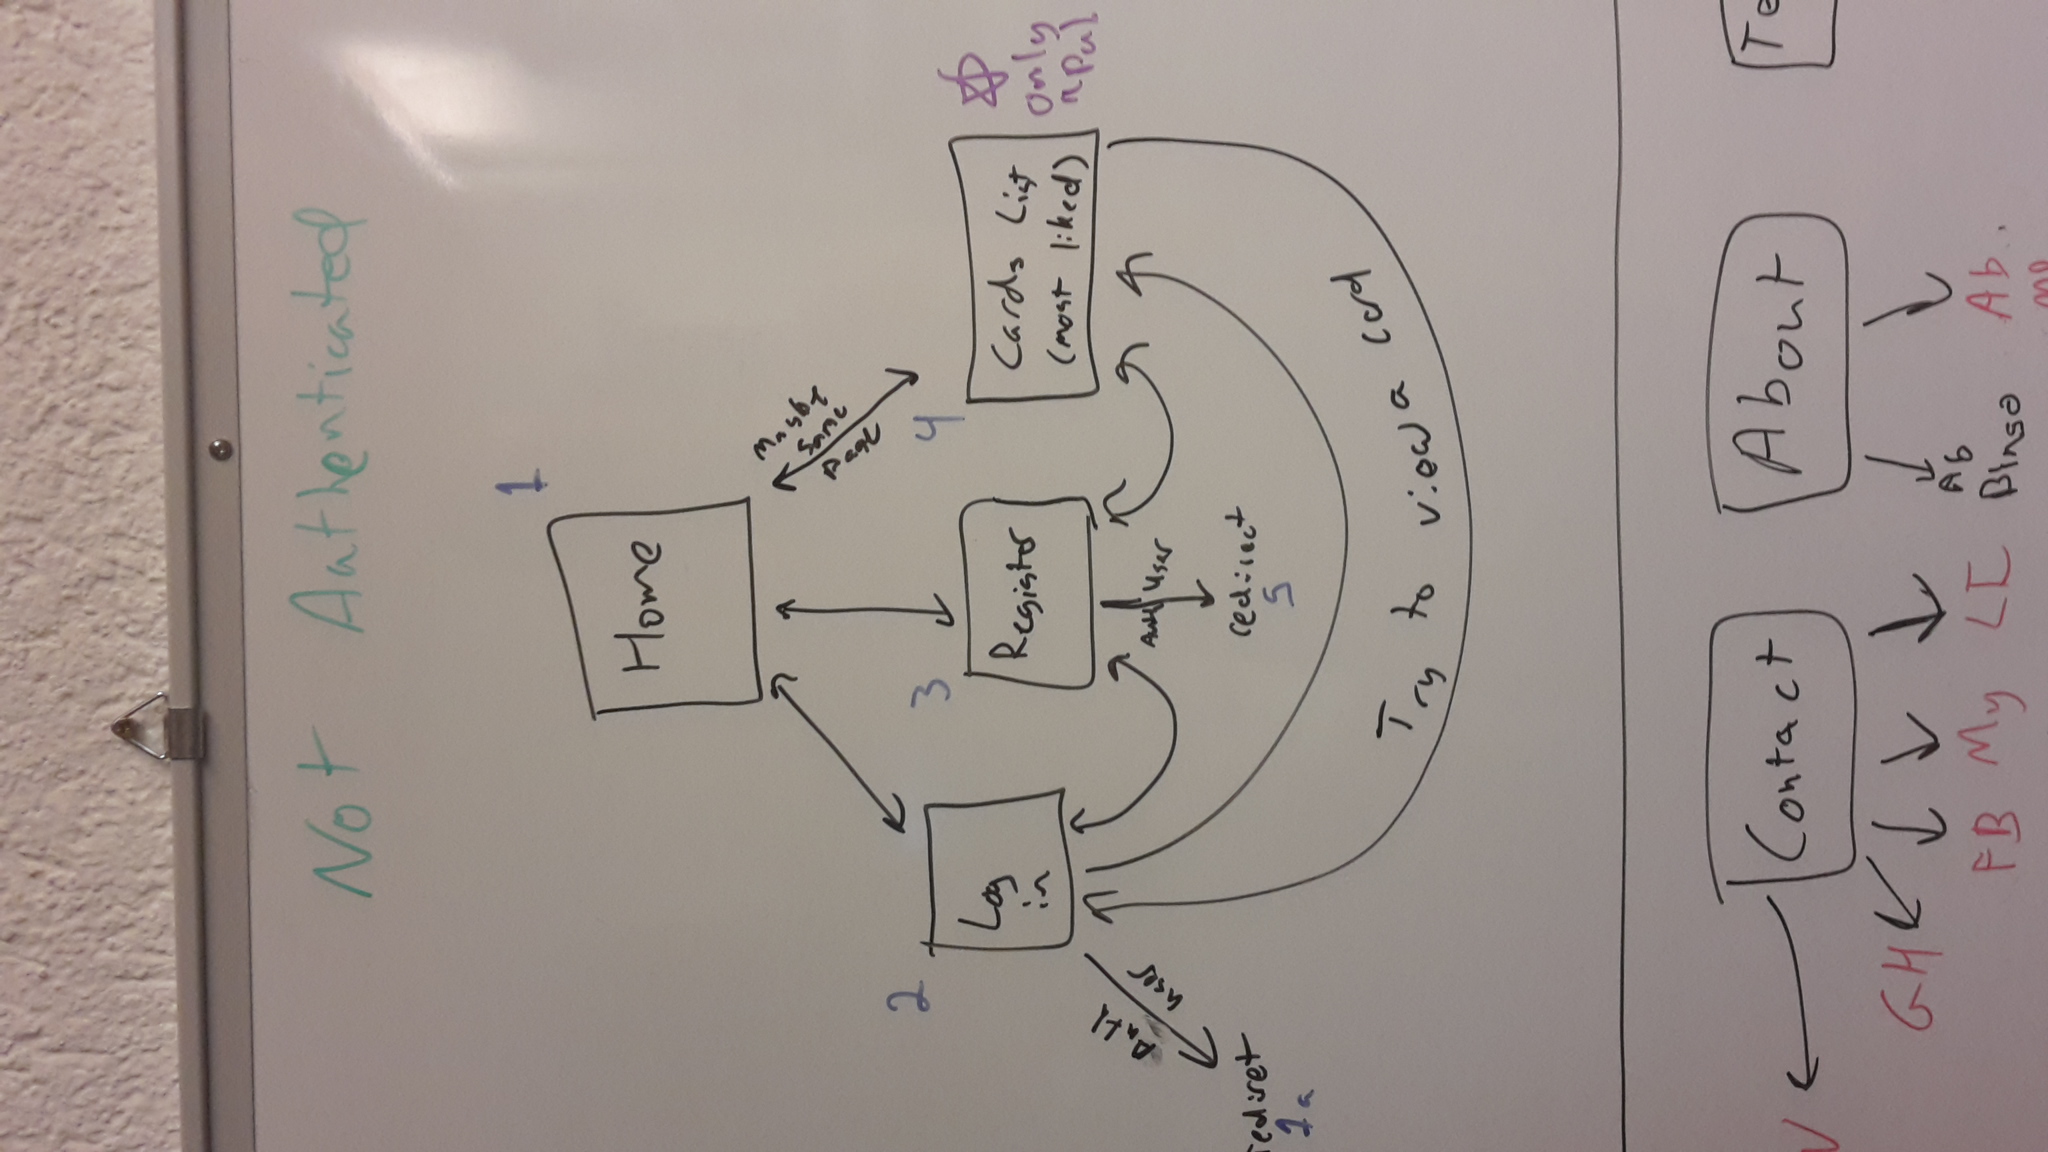 Not Authenticated
1
Home
Maybe
Same
Page
2
3
4
Log
in
Register
Cards List
(most liked)
only
Auth
user
Auth User
rediret
1a
redirect
5
Try to view a card
Contact
About
Te
GH
FB
My
LI
Ab
Ab
me